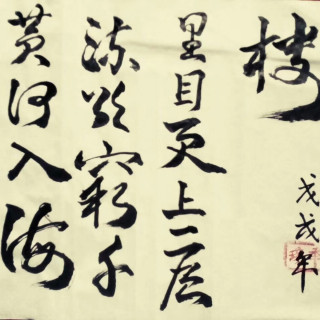 黄河入海
流欲窮千
里目更上一层
楼
戊戌年